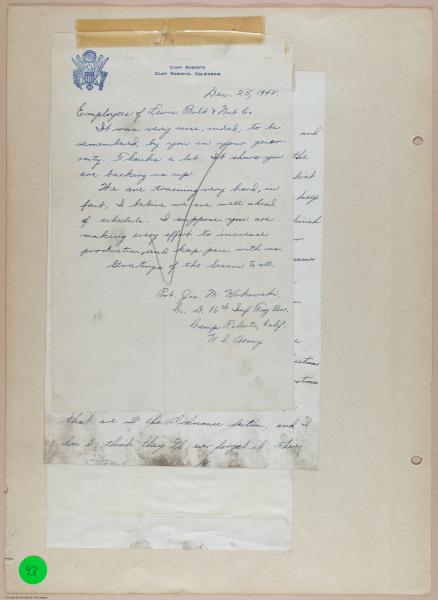 CAMP ROBERTS
CAMP ROBERTS, CALIFORNIA
Dec. 25, 1942.
Employees of Lewis Bolt & Nut Co.
It was very nice, indeed, to be
remembered by you in your gener-
osity. Thanks a lot. It shows you
are backing us up.
We are training very hard, in
fact, I believe we are well ahead
of schedule. I suppose you are
making every effort to increase
production, and keep pace with us.
Greetings of the Season to all.
Pvt. Jos. M.
Co. D. 16th Inf Trng Bn.
Camp Roberts, Calif.
U S Army
and
the
keep
that are in the Ordnance section, and I
don't think they'll ever forget it. They
43